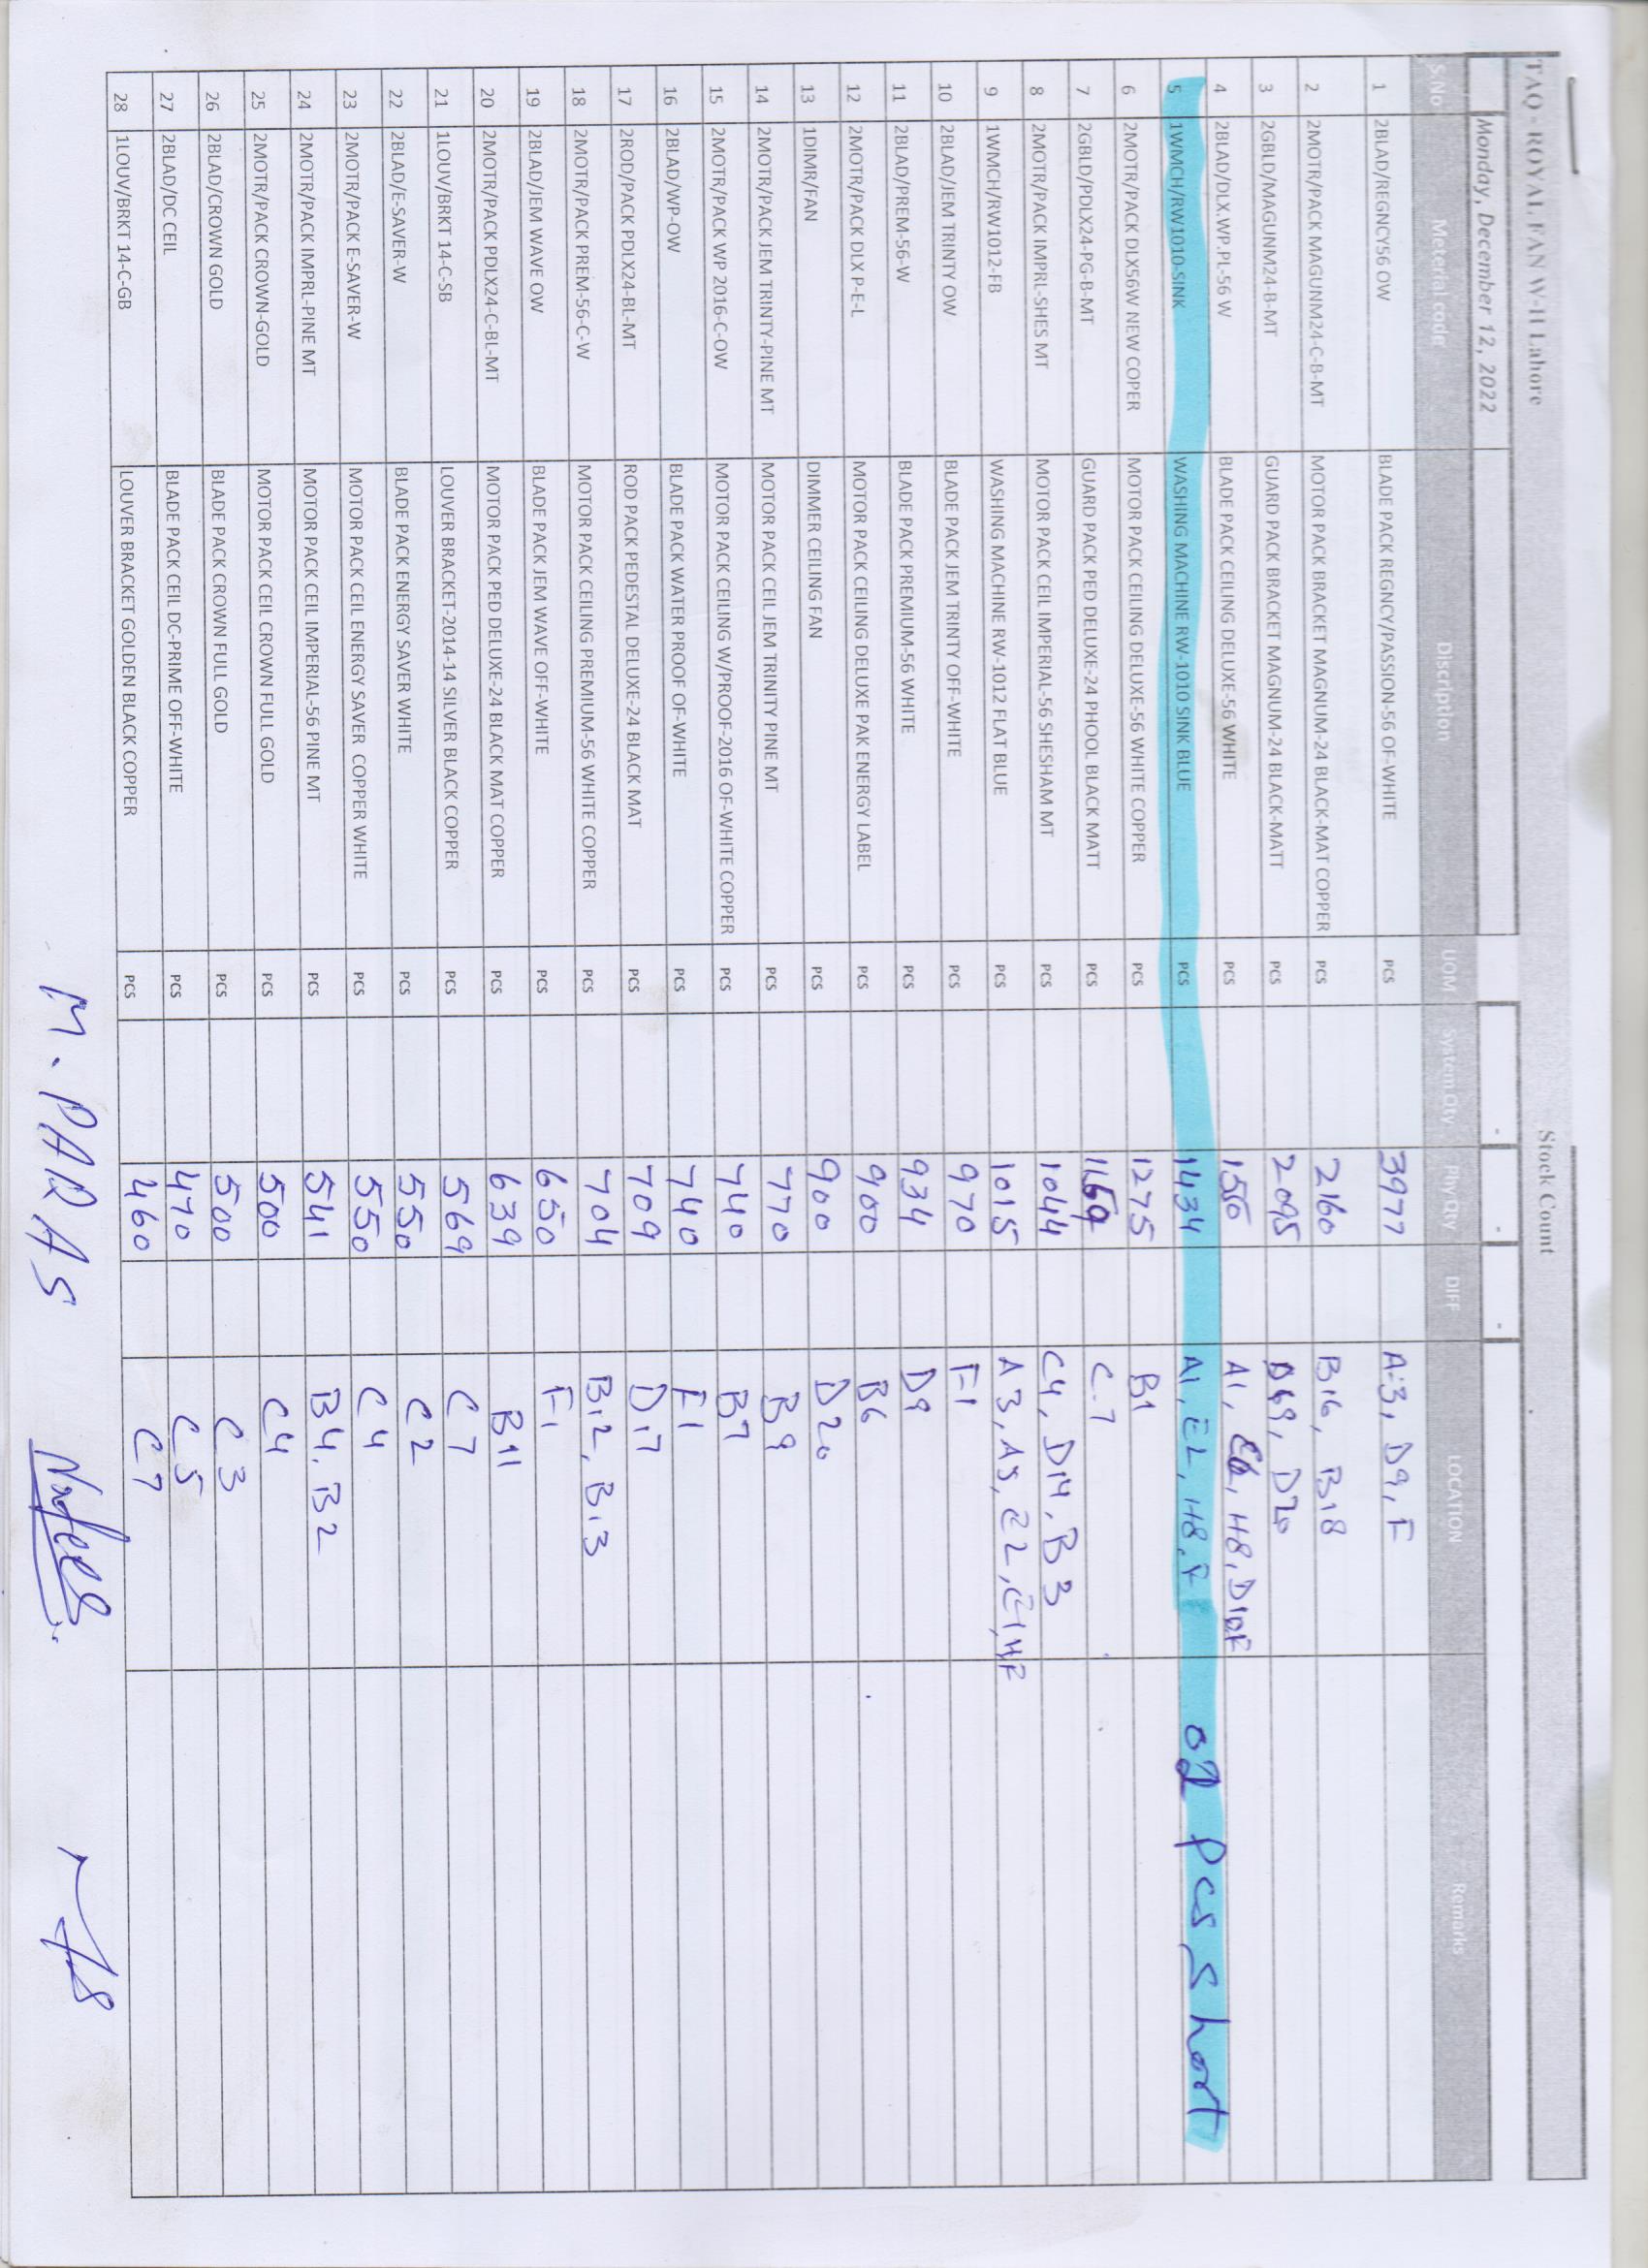 TAQ - ROYAL FAN W-H Lahore Stock Count
Monday, December 12, 2022 - - -
S.No Meterial code Discription UOM System Qty Phy Qty DIFF LOCATION Remarks
1 2BLAD/REGNCY56 OW BLADE PACK REGNCY/PASSION-56 OF-WHITE PCS 3977 A-3, D9, F
2 2MOTR/PACK MAGUNM24-C-B-MT MOTOR PACK BRACKET MAGNUM-24 BLACK-MAT COPPER PCS 2160 B16, B18
3 2GBLD/MAGUNM24-B-MT GUARD PACK BRACKET MAGNUM-24 BLACK-MATT PCS 2095 D20
4 2BLAD/DLX.WP.PL-56 W BLADE PACK CEILING DELUXE-56 WHITE PCS 1550 A1, H8, D10,F
5 1WMCH/RW1010-SINK WASHING MACHINE RW-1010 SINK BLUE PCS 1434 A1, E2, H8, F 02 Pcs short
6 2MOTR/PACK DLX56W NEW COPER MOTOR PACK CEILING DELUXE-56 WHITE COPPER PCS 1275 B1
7 2GBLD/PDLX24-PG-B-MT GUARD PACK PED DELUXE-24 PHOOL BLACK MATT PCS 1159 C-7
8 2MOTR/PACK IMPRL-SHES MT MOTOR PACK CEIL IMPERIAL-56 SHESHAM MT PCS 1044 C4, D14, B3
9 1WMCH/RW1012-FB WASHING MACHINE RW-1012 FLAT BLUE PCS 1015 A3, A5, E2, E1, H,F
10 2BLAD/JEM TRINTY OW BLADE PACK JEM TRINTY OFF-WHITE PCS 970 F1
11 2BLAD/PREM-56-W BLADE PACK PREMIUM-56 WHITE PCS 934 D9
12 2MOTR/PACK DLX P-E-L MOTOR PACK CEILING DELUXE PAK ENERGY LABEL PCS 900 B6
13 1DIMR/FAN DIMMER CEILING FAN PCS 900 D20
14 2MOTR/PACK JEM TRINTY-PINE MT MOTOR PACK CEIL JEM TRINITY PINE MT PCS 770 B9
15 2MOTR/PACK WP 2016-C-OW MOTOR PACK CEILING W/PROOF-2016 OF-WHITE COPPER PCS 740 B7
16 2BLAD/WP-OW BLADE PACK WATER PROOF OF-WHITE PCS 740 F1
17 2ROD/PACK PDLX24-BL-MT ROD PACK PEDESTAL DELUXE-24 BLACK MAT PCS 709 D17
18 2MOTR/PACK PREM-56-C-W MOTOR PACK CEILING PREMIUM-56 WHITE COPPER PCS 704 B12, B13
19 2BLAD/JEM WAVE OW BLADE PACK JEM WAVE OFF-WHITE PCS 650 F1
20 2MOTR/PACK PDLX24-C-BL-MT MOTOR PACK PED DELUXE-24 BLACK MAT COPPER PCS 639 B11
21 1LOUV/BRKT 14-C-SB LOUVER BRACKET-2014-14 SILVER BLACK COPPER PCS 569 C7
22 2BLAD/E-SAVER-W BLADE PACK ENERGY SAVER WHITE PCS 550 C2
23 2MOTR/PACK E-SAVER-W MOTOR PACK CEIL ENERGY SAVER COPPER WHITE PCS 550 C4
24 2MOTR/PACK IMPRL-PINE MT MOTOR PACK CEIL IMPERIAL-56 PINE MT PCS 541 B4, B2
25 2MOTR/PACK CROWN-GOLD MOTOR PACK CEIL CROWN FULL GOLD PCS 500 C4
26 2BLAD/CROWN GOLD BLADE PACK CROWN FULL GOLD PCS 500 C3
27 2BLAD/DC CEIL BLADE PACK CEIL DC-PRIME OFF-WHITE PCS 470 C5
28 1LOUV/BRKT 14-C-GB LOUVER BRACKET GOLDEN BLACK COPPER PCS 460 C7
M. PARAS Nafees